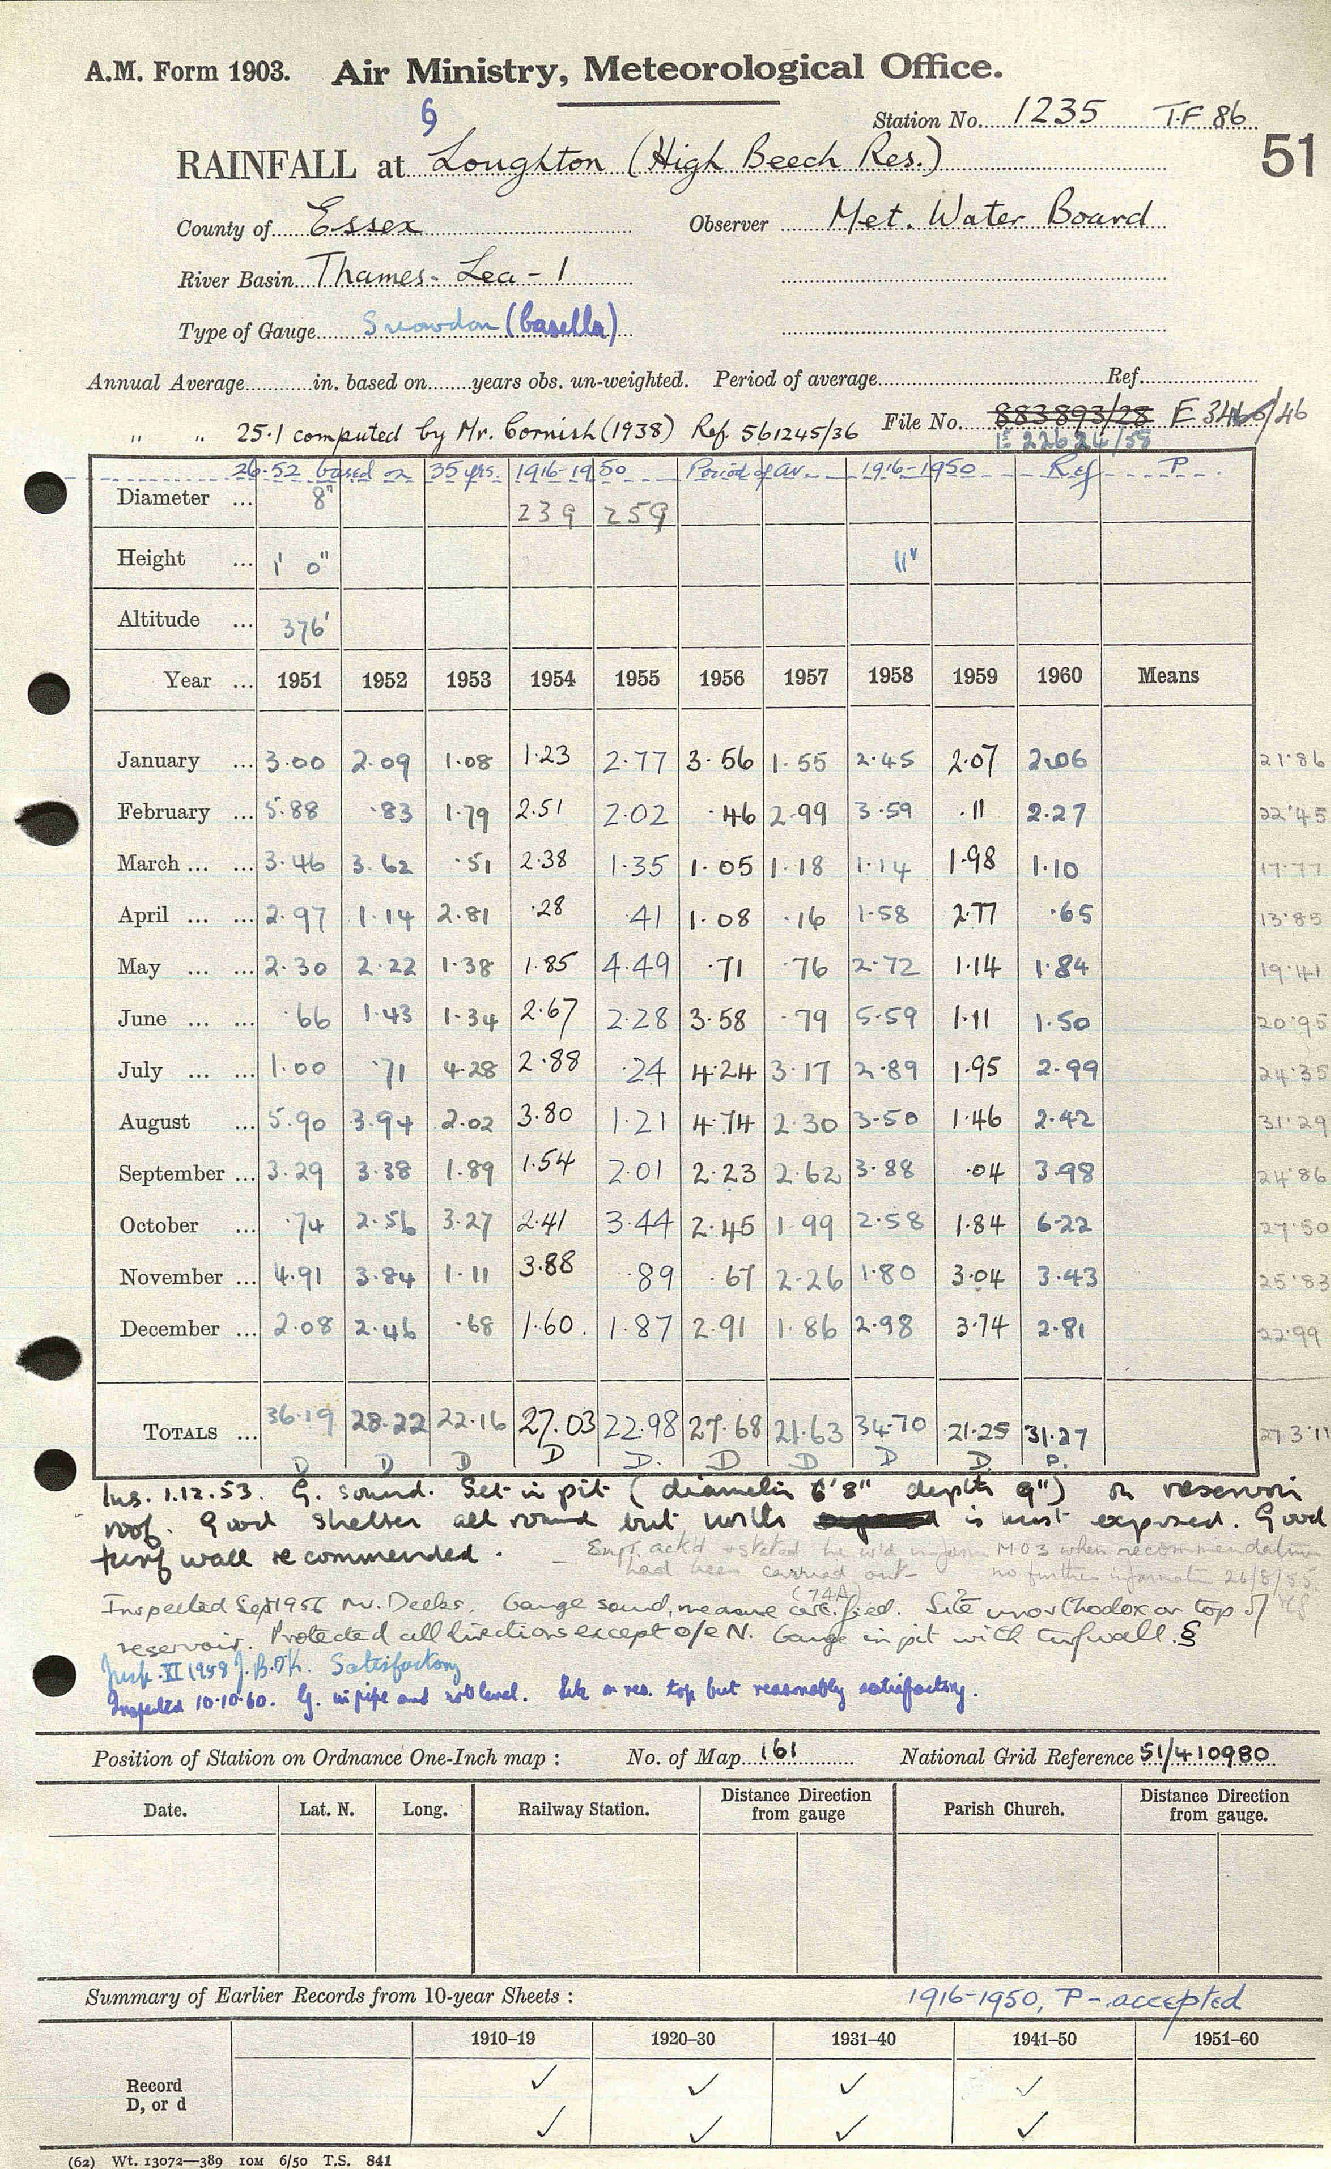 A.M. Form 1903. Air Ministry, Meteorological Office.
§
Station No. 1235 T.F 86
51
RAINFALL at Loughton (High Beech Res.)
County of Essex Observer Met. Water Board
River Basin Thames - Lea - 1
Type of Gauge Snowdon (Casella)
Annual Average in. based on years obs. un-weighted. Period of average Ref.
" " 25.1 computed by Mr. Cornish (1938) Ref 561245/36 File No. 883893/28
26.52 based on 35 yrs. 1916-1950 Period of av 1916-1950 Ref P.
Diameter ... 8" 239 259
Height ... 1' 0" 11"
Altitude ... 376'
Year ... 1951 1952 1953 1954 1955 1956 1957 1958 1959 1960 Means
January ... 3.00 2.09 1.08 1.23 2.77 3.56 1.55 2.45 2.07 2.06 21.86
February ... 5.88 .83 1.79 2.51 2.02 .46 2.99 3.59 .11 2.27 22.45
March ... ... 3.46 3.62 .51 2.38 1.35 1.05 1.18 1.14 1.98 1.10 17.77
April ... ... 2.97 1.14 2.81 .28 .41 1.08 .16 1.58 2.77 .65 13.85
May ... ... 2.30 2.22 1.38 1.85 4.49 .71 .76 2.72 1.14 1.84 19.41
June ... ... .66 1.43 1.34 2.67 2.28 3.58 .79 5.59 1.11 1.50 20.95
July ... ... 1.00 .71 4.28 2.88 .24 4.24 3.17 2.89 1.95 2.99 24.35
August ... 5.90 3.94 2.02 3.80 1.21 4.74 2.30 3.50 1.46 2.42 31.29
September ... 3.29 3.38 1.89 1.54 2.01 2.23 2.62 3.88 .04 3.98 24.86
October ... .74 2.56 3.27 2.41 3.44 2.45 1.99 2.58 1.84 6.22 27.50
November ... 4.91 3.84 1.11 3.88 .89 .67 2.26 1.80 3.04 3.43 25.83
December ... 2.08 2.46 .68 1.60 1.87 2.91 1.86 2.98 3.74 2.81 22.99
TOTALS ... 36.19 28.22 22.16 27.03 22.98 27.68 21.63 34.70 21.25 31.27 273.11
D D D D D. D D D D. P.
Ins. 1.12.53. G. sound. Set in pit (diameter 6'8" depth 9") on reservoir
roof. Good shelter all round but north is most exposed. Good
turf wall recommended.
Engr. ack'd & stated he w'd inform M03 when recommendation
had been carried out - no further information 26/8/55.
Inspected Sept 1956 Mr. Deeks. Gauge sound, measure certified. (74A) Site unorthodox on top of
reservoir. Protected all directions except o/e N. Gauge in pit with turf wall. §
Insp. VI 1958 Satisfactory
Inspected 10.10.60. G. in pipe and not level. Site on res. top but reasonably satisfactory.
Position of Station on Ordnance One-Inch map : No. of Map 161 National Grid Reference 51/410980
Date. Lat. N. Long. Railway Station. Distance Direction from gauge Parish Church. Distance Direction from gauge.
Summary of Earlier Records from 10-year Sheets : 1916-1950, P - accepted
1910–19 1920–30 1931–40 1941–50 1951–60
Record ✓ ✓ ✓ ✓
D, or d ✓ ✓ ✓ ✓
(62) Wt. 13072—389 10M 6/50 T.S. 841